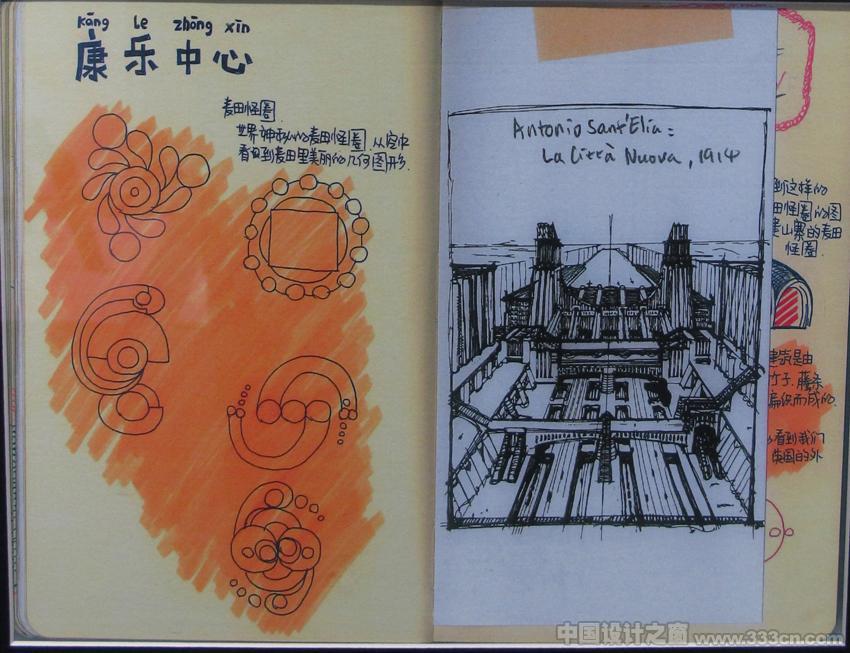 kāng le zhōng xīn
康乐中心
麦田怪圈.
世界神秘的麦田怪圈.从空中
看到麦田里美丽的几何图形.
Antonio Sant'Elia:
La Città Nuova, 1914
到这样的
田怪圈的图
山寨的麦田
怪圈.
建筑是由
竹子.藤条
编织而成的.
看到我们
英国的外
中国设计之窗 www.333cn.com